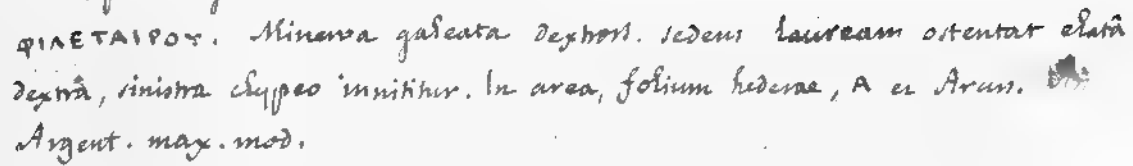 ΦΙΛΕΤΑΙΡΟΥ. Minerva galeata dextrors. sedens lauream ostentat elatâ
dextrâ, sinistra clypeo innititur. In area, folium hederae, A et Arcus.
Argent. max. mod.